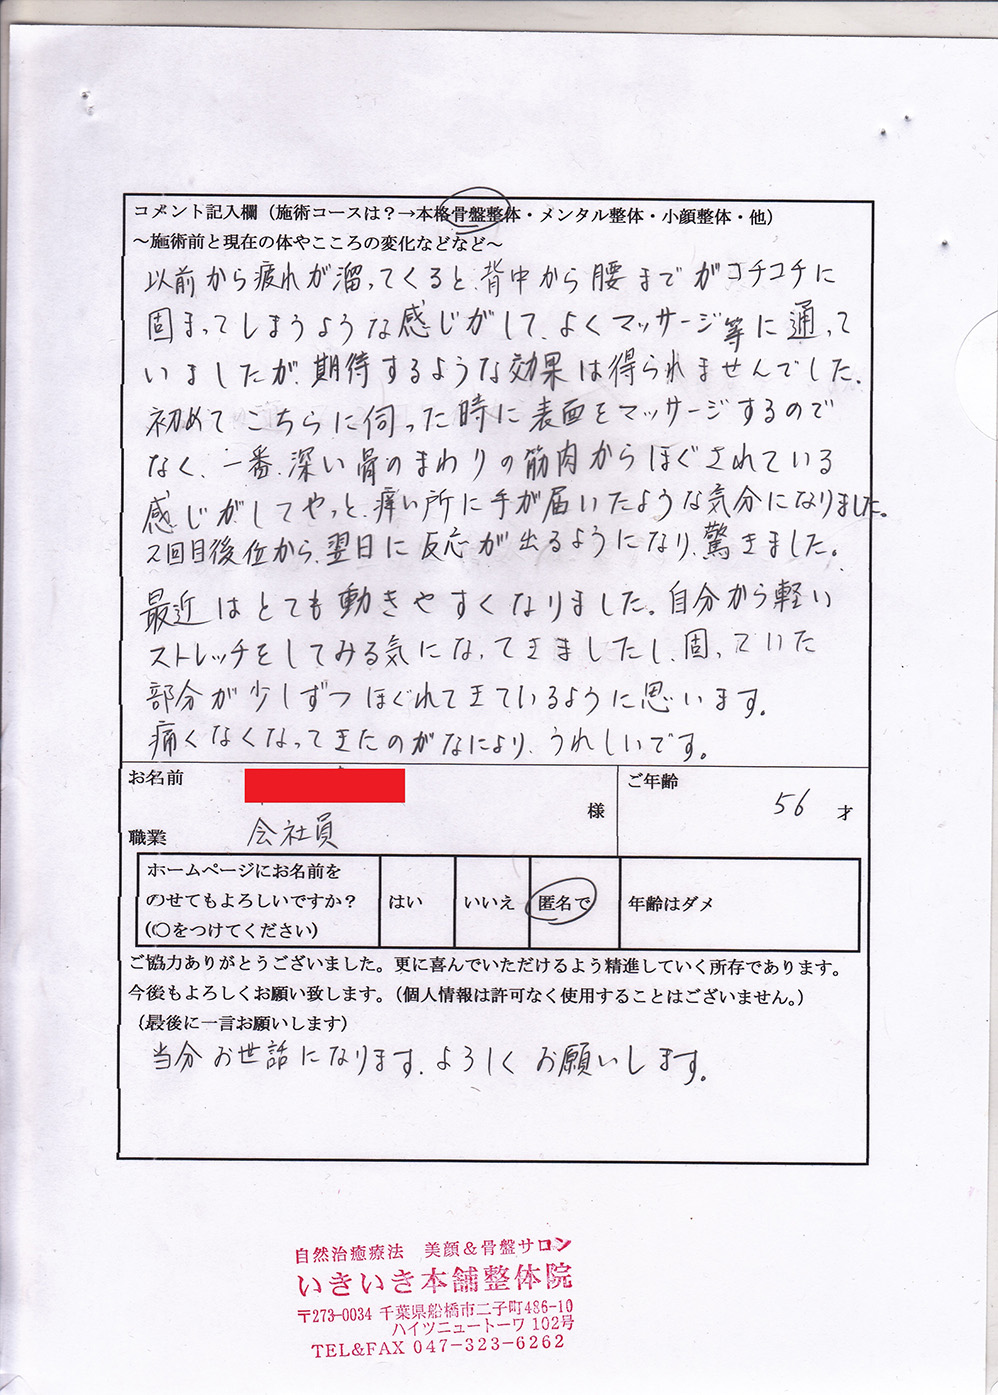 コメント記入欄（施術コースは？→本格骨盤整体・メンタル整体・小顔整体・他）
～施術前と現在の体やこころの変化などなど～
以前から疲れが溜ってくると、背中から腰までがコチコチに
固まってしまうような感じがして、よくマッサージ等に通って
いましたが、期待するような効果は得られませんでした。
初めてこちらに伺った時に表面をマッサージするので
なく、一番、深い骨のまわりの筋肉からほぐされている
感じがしてやっと、痒い所に手が届いたような気分になりました。
2回目後位から、翌日に反応が出るようになり、驚きました。
最近はとても動きやすくなりました。自分から軽い
ストレッチをしてみる気になってきましたし、固っていた
部分が少しずつほぐれてきているように思います。
痛くなくなってきたのがなにより、うれしいです。
お名前
様
ご年齢
56 才
職業 会社員
ホームページにお名前を
のせてもよろしいですか？
（○をつけてください）
はい
いいえ
匿名で
年齢はダメ
ご協力ありがとうございました。更に喜んでいただけるよう精進していく所存であります。
今後もよろしくお願い致します。（個人情報は許可なく使用することはございません。）
（最後に一言お願いします）
当分お世話になります。よろしくお願いします。
自然治癒療法 美顔＆骨盤サロン
いきいき本舗整体院
〒273-0034 千葉県船橋市二子町486-10
ハイツニュートーワ 102号
TEL&FAX 047-323-6262